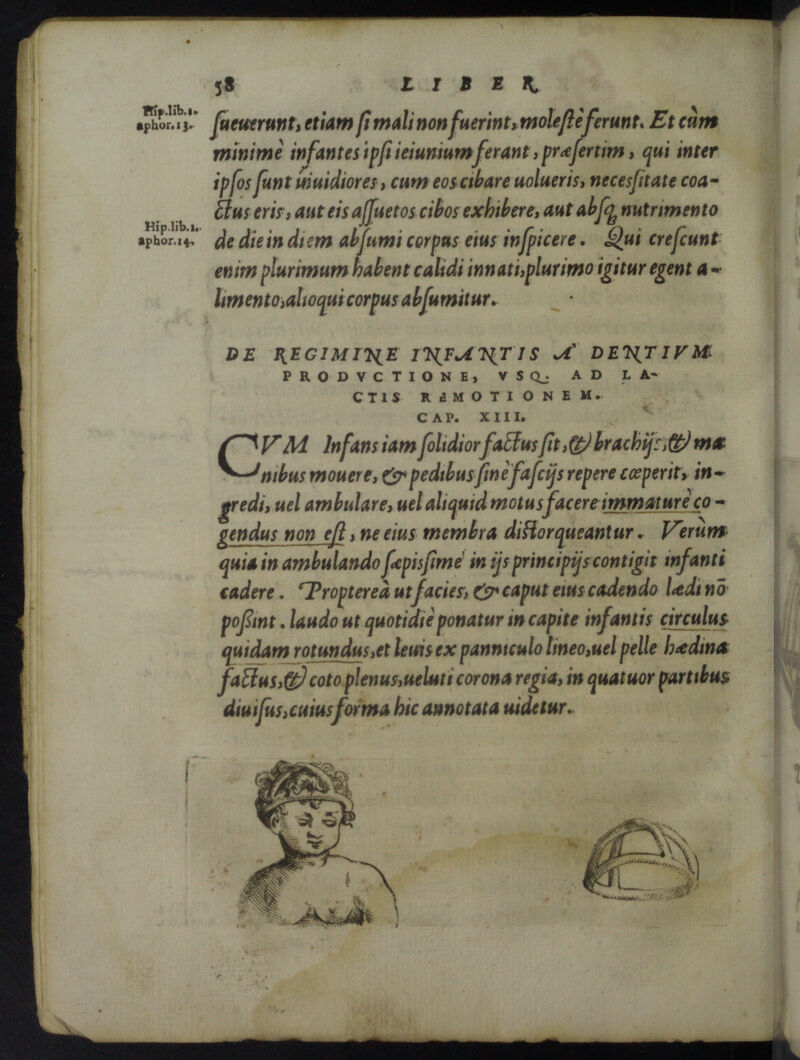 58 LIBER
Hip.lib.1.
aphor.13.
ſueuerunt, etiam ſi mali non fuerint, moleſtè ferunt. Et cùm
minimè infantes ipſi ieiunium ferant, præſertim, qui inter
ipſos ſunt uiuidiores, cum eos cibare uolueris, neceſſitate coa-
ctus eris, aut eis aſſuetos cibos exhibere, aut abſq; nutrimento
Hip.lib.1.
aphor.14.
de die in diem abſumi corpus eius inſpicere. Qui creſcunt
enim plurimum habent calidi innati, plurimo igitur egent a-
limento, alioqui corpus abſumitur.
DE REGIMINE INFANTIS A' DENTIVM
PRODVCTIONE, VSQ; AD LA-
CTIS REMOTIONEM.
CAP. XIII.
CVM Infans iam ſolidior factus ſit, & brachijs, & ma
nibus mouere, & pedibus ſinè faſcijs repere cœperit, in-
gredi, uel ambulare, uel aliquid motus facere immaturè co-
gendus non eſt, ne eius membra diſtorqueantur. Verùm
quia in ambulando ſæpiſſime in ijs principijs contigit infanti
cadere. Proptereà ut facies, & caput eius cadendo lædi nō
poſſint. laudo ut quotidiè ponatur in capite infantis circulus
quidam rotundus, et leuis ex panniculo lineo, uel pelle hædina
factus, & coto plenus, ueluti corona regia, in quatuor partibus
diuiſus, cuius forma hic annotata uidetur.